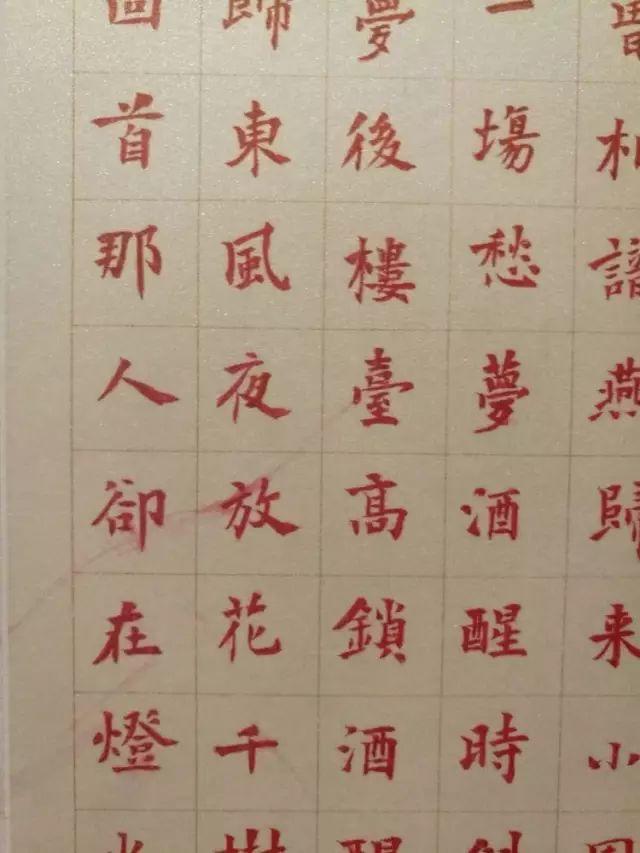 曾相識燕歸来小
一場愁夢酒醒時斜
夢後樓臺高鎖酒醒
歸東風夜放花千樹
回首那人卻在燈火